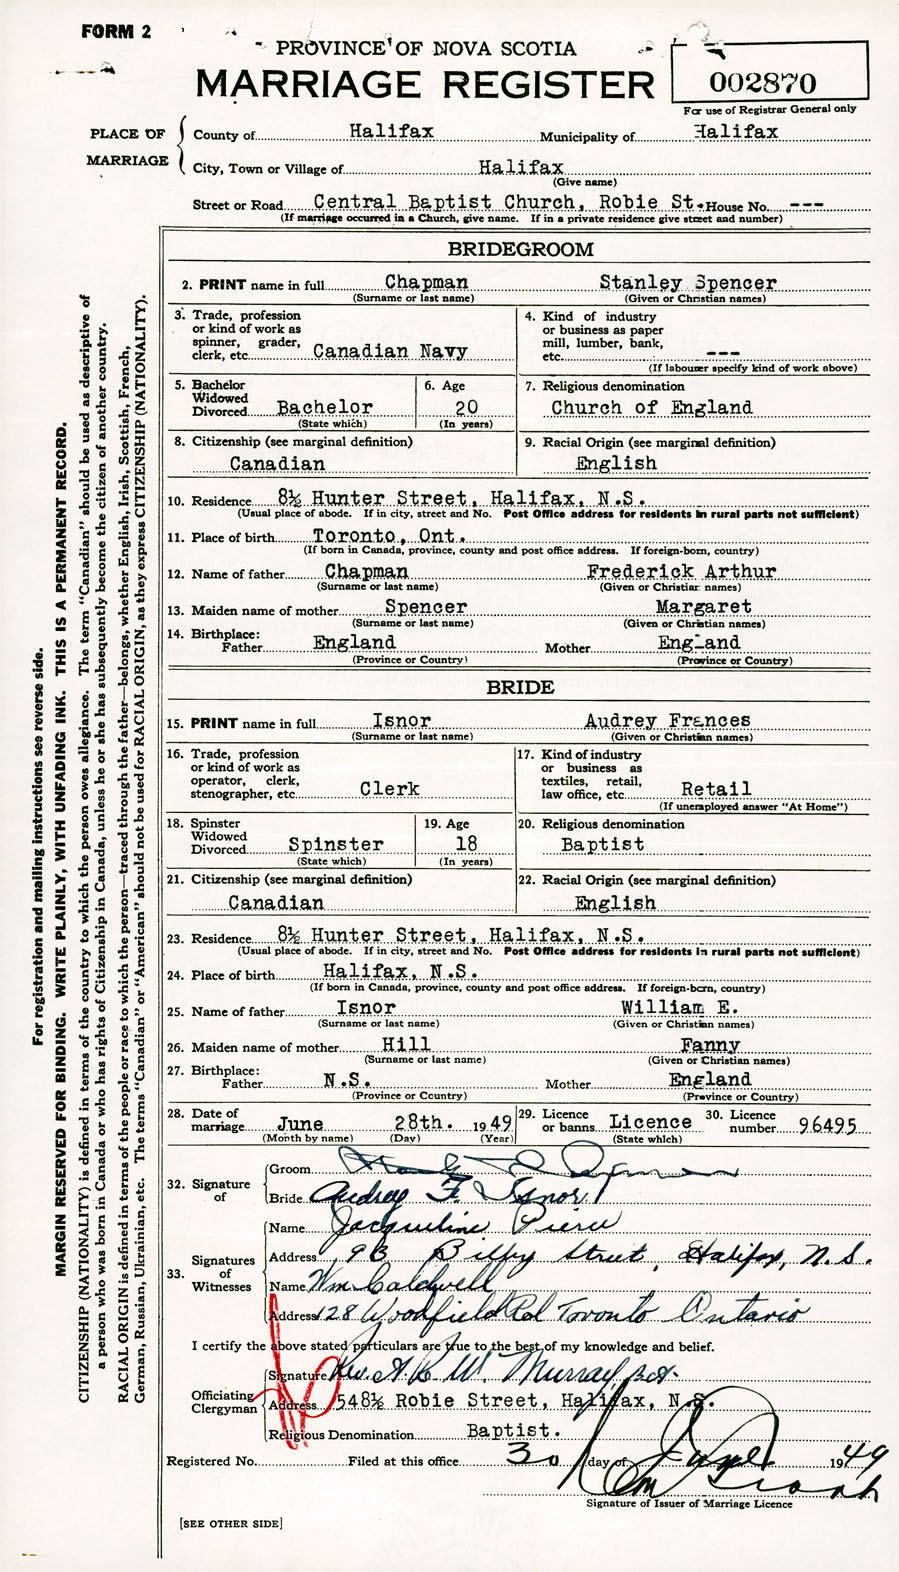 FORM 2
PROVINCE OF NOVA SCOTIA
MARRIAGE REGISTER
002870
For use of Registrar General only
PLACE OF MARRIAGE
County of Halifax Municipality of Halifax
City, Town or Village of Halifax
(Give name)
Street or Road Central Baptist Church, Robie St. House No. ---
(If marriage occurred in a Church, give name. If in a private residence give street and number)
BRIDEGROOM
2. PRINT name in full Chapman Stanley Spencer
(Surname or last name) (Given or Christian names)
3. Trade, profession or kind of work as spinner, grader, clerk, etc. Canadian Navy
4. Kind of industry or business as paper mill, lumber, bank, etc. ---
(If labourer specify kind of work above)
5. Bachelor Widowed Divorced Bachelor
(State which)
6. Age 20
(In years)
7. Religious denomination
Church of England
8. Citizenship (see marginal definition)
Canadian
9. Racial Origin (see marginal definition)
English
10. Residence 8½ Hunter Street, Halifax, N.S.
(Usual place of abode. If in city, street and No. Post Office address for residents in rural parts not sufficient)
11. Place of birth Toronto, Ont.
(If born in Canada, province, county and post office address. If foreign-born, country)
12. Name of father Chapman Frederick Arthur
(Surname or last name) (Given or Christian names)
13. Maiden name of mother Spencer Margaret
(Surname or last name) (Given or Christian names)
14. Birthplace:
Father England Mother England
(Province or Country) (Province or Country)
BRIDE
15. PRINT name in full Isnor Audrey Frances
(Surname or last name) (Given or Christian names)
16. Trade, profession or kind of work as operator, clerk, stenographer, etc. Clerk
17. Kind of industry or business as textiles, retail, law office, etc. Retail
(If unemployed answer "At Home")
18. Spinster Widowed Divorced Spinster
(State which)
19. Age 18
(In years)
20. Religious denomination
Baptist
21. Citizenship (see marginal definition)
Canadian
22. Racial Origin (see marginal definition)
English
23. Residence 8½ Hunter Street, Halifax, N.S.
(Usual place of abode. If in city, street and No. Post Office address for residents in rural parts not sufficient)
24. Place of birth Halifax, N.S.
(If born in Canada, province, county and post office address. If foreign-born, country)
25. Name of father Isnor William E.
(Surname or last name) (Given or Christian names)
26. Maiden name of mother Hill Fanny
(Surname or last name) (Given or Christian names)
27. Birthplace:
Father N.S. Mother England
(Province or Country) (Province or Country)
28. Date of marriage June 28th. 1949
(Month by name) (Day) (Year)
29. Licence or banns Licence
(State which)
30. Licence number 96495
32. Signature of
Groom
Bride Audrey F. Isnor
33. Signatures of Witnesses
Name Jacqueline
Address 93 Street, Halifax, N.S.
Name Wm Caldwell
Address 128 Woodfield Rd Toronto Ontario
I certify the above stated particulars are true to the best of my knowledge and belief.
Officiating Clergyman
Signature Rev. W. Murray
Address 548½ Robie Street, Halifax, N.S.
Religious Denomination Baptist.
Registered No. Filed at this office 30 day of June 1949
Signature of Issuer of Marriage Licence
[SEE OTHER SIDE]
For registration and mailing instructions see reverse side.
MARGIN RESERVED FOR BINDING. WRITE PLAINLY, WITH UNFADING INK. THIS IS A PERMANENT RECORD.
CITIZENSHIP (NATIONALITY) is defined in terms of the country to which the person owes allegiance. The term "Canadian" should be used as descriptive of
a person who was born in Canada or who has rights of Citizenship in Canada, unless he or she has subsequently become the citizen of another country.
RACIAL ORIGIN is defined in terms of the people or race to which the person—traced through the father—belongs, whether English, Irish, Scottish, French,
German, Russian, Ukrainian, etc. The terms "Canadian" or "American" should not be used for RACIAL ORIGIN, as they express CITIZENSHIP (NATIONALITY).